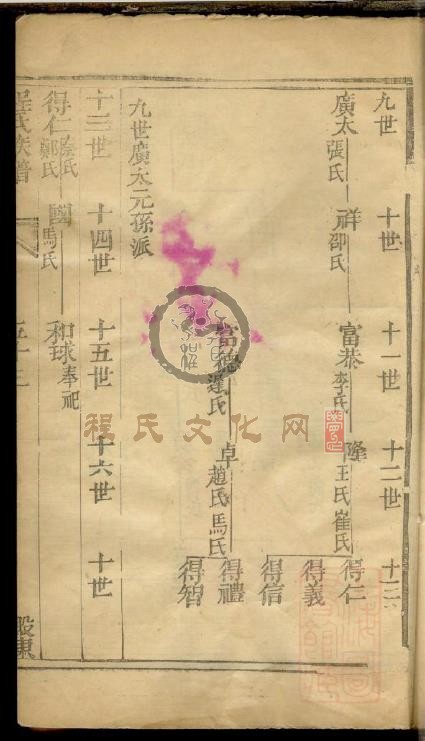 九世 十世 十一世 十二世 十三
廣太 張氏 祥 邵氏 富恭 李氏 隆 王氏 崔氏 得仁
得義
得信
富德 氏 卓 趙氏 馬氏 得禮
得智
九世廣太元孫派
十三世 十四世 十五世 十六世 十世
得仁 氏 鄭氏 國 馬氏 和 球奉祀
程氏族譜
程氏文化网